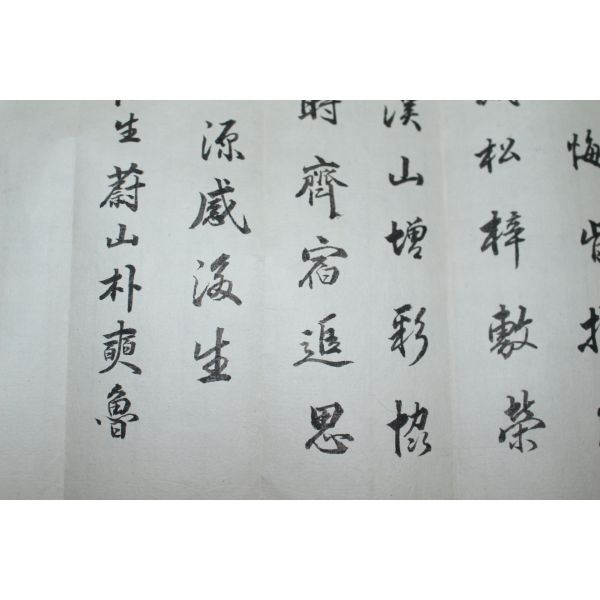 悔
松梓敷榮
溪山增彩協
時齊宿追思
源感後生
生蔚山朴奭魯